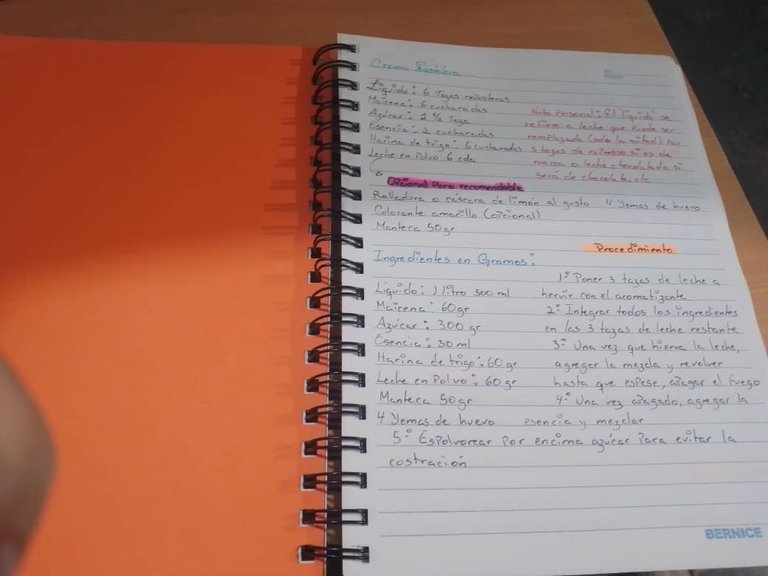 Crema Pastelera
Líquido: 6 Tazas reposteras
Maicena: 6 cucharadas
Azúcar: 1 ½ Taza
Esencia: 2 cucharadas
Harina de trigo: 6 cucharadas
Leche en Polvo 6 cda
Nota Personal: El líquido se
refiere a leche que puede ser
remplazada (solo la mitad) por
3 tazas de si es de
o leche chocolatada si
será de chocolate, etc
Opcional Pero recomendable
Ralladura o cáscara de limón al gusto 4 Yemas de huevo
Colorante amarillo (opcional)
Manteca 50gr
Ingredientes en Gramos:
Líquido: 1 litro 500 ml
Maicena: 60gr
Azúcar: 300 gr
Esencia: 30 ml
Harina de trigo: 60 gr
Leche en Polvo: 60 gr
Manteca 50gr
4 Yemas de huevo
Procedimiento
1º Poner 3 tazas de leche a
hervir con el aromatizante
2º Integrar todos los ingredientes
en las 3 tazas de leche restante
3º Una vez que hierva la leche,
agregar la mezcla y revolver
hasta que espese, apagar el fuego
4º Una vez apagado, agregar la
esencia y mezclar
5º Espolvorear por encima azúcar para evitar la
costración
BERNICE